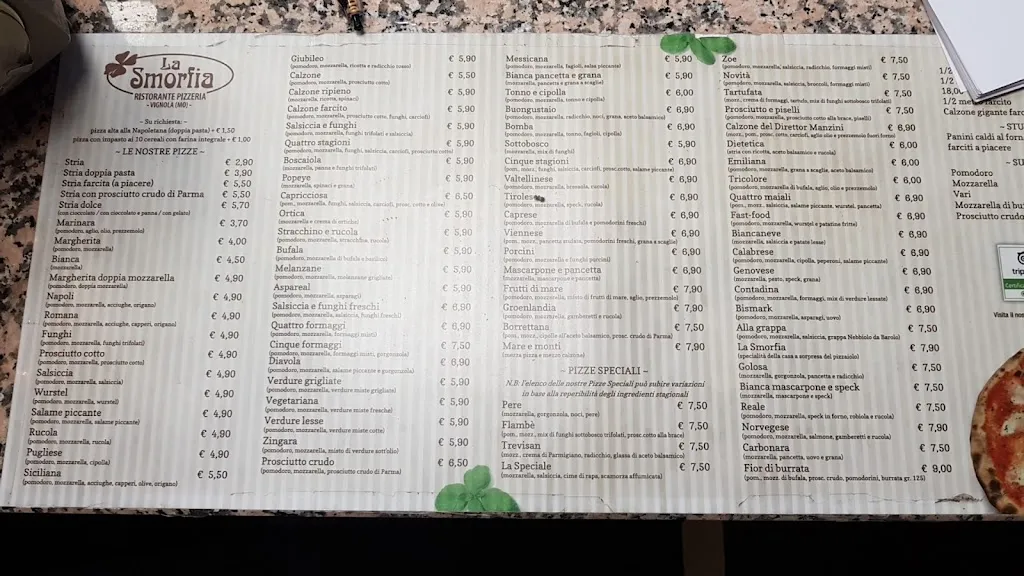 La
Smorfia
RISTORANTE PIZZERIA
- VIGNOLA (MO) -
~ Su richiesta: ~
pizza alta alla Napoletana (doppia pasta) + € 1,50
pizza con impasto ai 10 cereali con farina integrale + € 1,00
~ LE NOSTRE PIZZE ~
Stria € 2,90
Stria doppia pasta € 3,90
Stria farcita (a piacere) € 5,50
Stria con prosciutto crudo di Parma € 5,50
Stria dolce € 5,70
(con cioccolato / con cioccolato e panna / con gelato)
Marinara € 3,70
(pomodoro, aglio, olio, prezzemolo)
Margherita € 4,00
(pomodoro, mozzarella)
Bianca € 4,50
(mozzarella)
Margherita doppia mozzarella € 4,90
(pomodoro, doppia mozzarella)
Napoli € 4,90
(pomodoro, mozzarella, acciughe, origano)
Romana € 4,90
(pomodoro, mozzarella, acciughe, capperi, origano)
Funghi € 4,90
(pomodoro, mozzarella, funghi trifolati)
Prosciutto cotto € 4,90
(pomodoro, mozzarella, prosciutto cotto)
Salsiccia € 4,90
(pomodoro, mozzarella, salsiccia)
Wurstel € 4,90
(pomodoro, mozzarella, wurstel)
Salame piccante € 4,90
(pomodoro, mozzarella, salame piccante)
Rucola € 4,90
(pomodoro, mozzarella, rucola)
Pugliese € 4,90
(pomodoro, mozzarella, cipolla)
Siciliana € 5,50
(pomodoro, mozzarella, acciughe, capperi, olive, origano)
Giubileo € 5,90
(pomodoro, mozzarella, ricotta e radicchio rosso)
Calzone € 5,50
(pomodoro, mozzarella, prosciutto cotto)
Calzone ripieno € 5,90
(mozzarella, ricotta, spinaci)
Calzone farcito € 5,90
(pomodoro, mozzarella, prosciutto cotto, funghi, carciofi)
Salsiccia e funghi € 5,90
(pomodoro, mozzarella, funghi trifolati e salsiccia)
Quattro stagioni € 5,90
(pomodoro, mozzarella, funghi, salsiccia, carciofi, prosciutto cotto)
Boscaiola € 5,90
(mozzarella, panna e funghi trifolati)
Popeye € 5,90
(mozzarella, spinaci e grana)
Capricciosa € 6,50
(pom., mozzarella, funghi, salsiccia, carciofi, prosc. cotto e olive)
Ortica € 5,90
(mozzarella e crema di ortica)
Stracchino e rucola € 5,90
(pomodoro, mozzarella, stracchino, rucola)
Bufala € 5,90
(pomodoro, mozzarella di bufala e basilico)
Melanzane € 5,90
(pomodoro, mozzarella, melanzane grigliate)
Aspareal € 5,90
(pomodoro, mozzarella, asparagi)
Salsiccia e funghi freschi € 6,90
(pomodoro, mozzarella, salsiccia, funghi freschi)
Quattro formaggi € 6,90
(pomodoro, mozzarella, formaggi misti)
Cinque formaggi € 7,50
(pomodoro, mozzarella, formaggi misti, gorgonzola)
Diavola € 6,90
(pomodoro, mozzarella, salame piccante e gorgonzola)
Verdure grigliate € 5,90
(pomodoro, mozzarella, verdure miste grigliate)
Vegetariana € 5,90
(pomodoro, mozzarella, verdure miste fresche)
Verdure lesse € 5,90
(pomodoro, mozzarella, verdure miste cotte)
Zingara € 5,90
(pomodoro, mozzarella, misto di verdure sott'olio)
Prosciutto crudo € 6,50
(pomodoro, mozzarella, prosciutto crudo di Parma)
Messicana € 5,90
(pomodoro, mozzarella, fagioli, salsa piccante)
Bianca pancetta e grana € 5,90
(mozzarella, pancetta e grana a scaglie)
Tonno e cipolla € 6,00
(pomodoro, mozzarella, tonno e cipolla)
Buongustaio € 6,90
(pomodoro, mozzarella, radicchio, noci, grana, aceto balsamico)
Bomba € 6,90
(pomodoro, mozzarella, tonno, fagioli, cipolla)
Sottobosco € 5,90
(mozzarella, mix di funghi)
Cinque stagioni € 6,90
(pom., mozz., funghi, salsiccia, carciofi, prosc. cotto, salame piccante)
Valtellinese € 6,90
(pomodoro, mozzarella, bresaola, rucola)
Tirolese € 6,90
(pomodoro, mozzarella, speck, rucola)
Caprese € 6,90
(pomodoro, mozzarella di bufala e pomodorini freschi)
Viennese € 6,90
(pom., mozz., pancetta, rucola, pomodorini freschi, grana a scaglie)
Porcini € 6,90
(pomodoro, mozzarella e funghi porcini)
Mascarpone e pancetta € 6,90
(mozzarella, mascarpone e pancetta)
Frutti di mare € 7,90
(pomodoro, mozzarella, misto di frutti di mare, aglio, prezzemolo)
Groenlandia € 7,90
(pomodoro, mozzarella, gamberetti e rucola)
Borrettana € 7,50
(pom., mozz., cipolle all'aceto balsamico, prosc. crudo di Parma)
Mare e monti € 7,90
(mezza pizza e mezzo calzone)
~ PIZZE SPECIALI ~
N.B: l'elenco delle nostre Pizze Speciali può subire variazioni
in base alla reperibilità degli ingredienti stagionali
Pere € 7,50
(mozzarella, gorgonzola, noci, pere)
Flambè € 7,50
(pom., mozz., mix di funghi sottobosco trifolati, prosc.cotto alla brace)
Trevisan € 7,50
(mozz., crema di Parmigiano, radicchio, glassa di aceto balsamico)
La Speciale € 7,50
(mozzarella, salsiccia, cime di rapa, scamorza affumicata)
Zoe € 7,50
(pomodoro, mozzarella, salsiccia, radicchio, formaggi misti)
Novità € 7,50
(pomodoro, mozzarella, salsiccia, broccoli, formaggi misti)
Tartufata € 7,50
(moz., crema di formaggi, tartufo, mix di funghi sottobosco trifolati)
Prosciutto e piselli € 7,50
(pomodoro, mozzarella, prosciutto cotto alla brace, piselli)
Calzone del Direttor Manzini € 6,90
(pom., pom., prosc. cotto, carciofi, aglio olio e prezzemolo fuori forno)
Dietetica € 6,00
(stria con ricotta, aceto balsamico e rucola)
Emiliana € 6,00
(pomodoro, mozzarella, grana a scaglie, aceto balsamico)
Tricolore € 6,00
(pomodoro, mozzarella di bufala, aglio, olio e prezzemolo)
Quattro maiali € 6,90
(pom., mozz., salsiccia, salame piccante, wurstel, pancetta)
Fast-food € 6,90
(pomodoro, mozzarella, wurstel e patatine fritte)
Biancaneve € 6,90
(mozzarella, salsiccia e patate lesse)
Calabrese € 6,90
(pomodoro, mozzarella, cipolla, peperoni, salame piccante)
Genovese € 6,90
(mozzarella, pesto, speck, grana)
Contadina € 6,90
(pomodoro, mozzarella, formaggi, mix di verdure lessate)
Bismark € 6,90
(pomodoro, mozzarella, asparagi, uovo)
Alla grappa € 7,50
(pomodoro, mozzarella, salsiccia, grappa Nebbiolo da Barolo)
La Smorfia € 7,90
(specialità della casa a sorpresa del pizzaiolo)
Golosa € 7,50
(mozzarella, gorgonzola, pancetta e radicchio)
Bianca mascarpone e speck € 7,50
(mozzarella, mascarpone e speck)
Reale € 7,50
(pomodoro, mozzarella, speck in forno, robiola e rucola)
Norvegese € 7,90
(pomodoro, mozzarella, salmone, gamberetti e rucola)
Carbonara € 7,50
(mozzarella, pancetta, uovo e grana)
Fior di burrata € 9,00
(pom., mozz. di bufala, prosc. crudo, pomodorini, burrata gr. 125)
1/2
1/2
18,00
1/2 me farcito
Calzone gigante farc
~ STU
Panini caldi al forn
farciti a piacere
~ SU
Pomodoro
Mozzarella
Vari
Mozzarella di bu
Prosciutto crudo
trip
Certific
Visita il nos